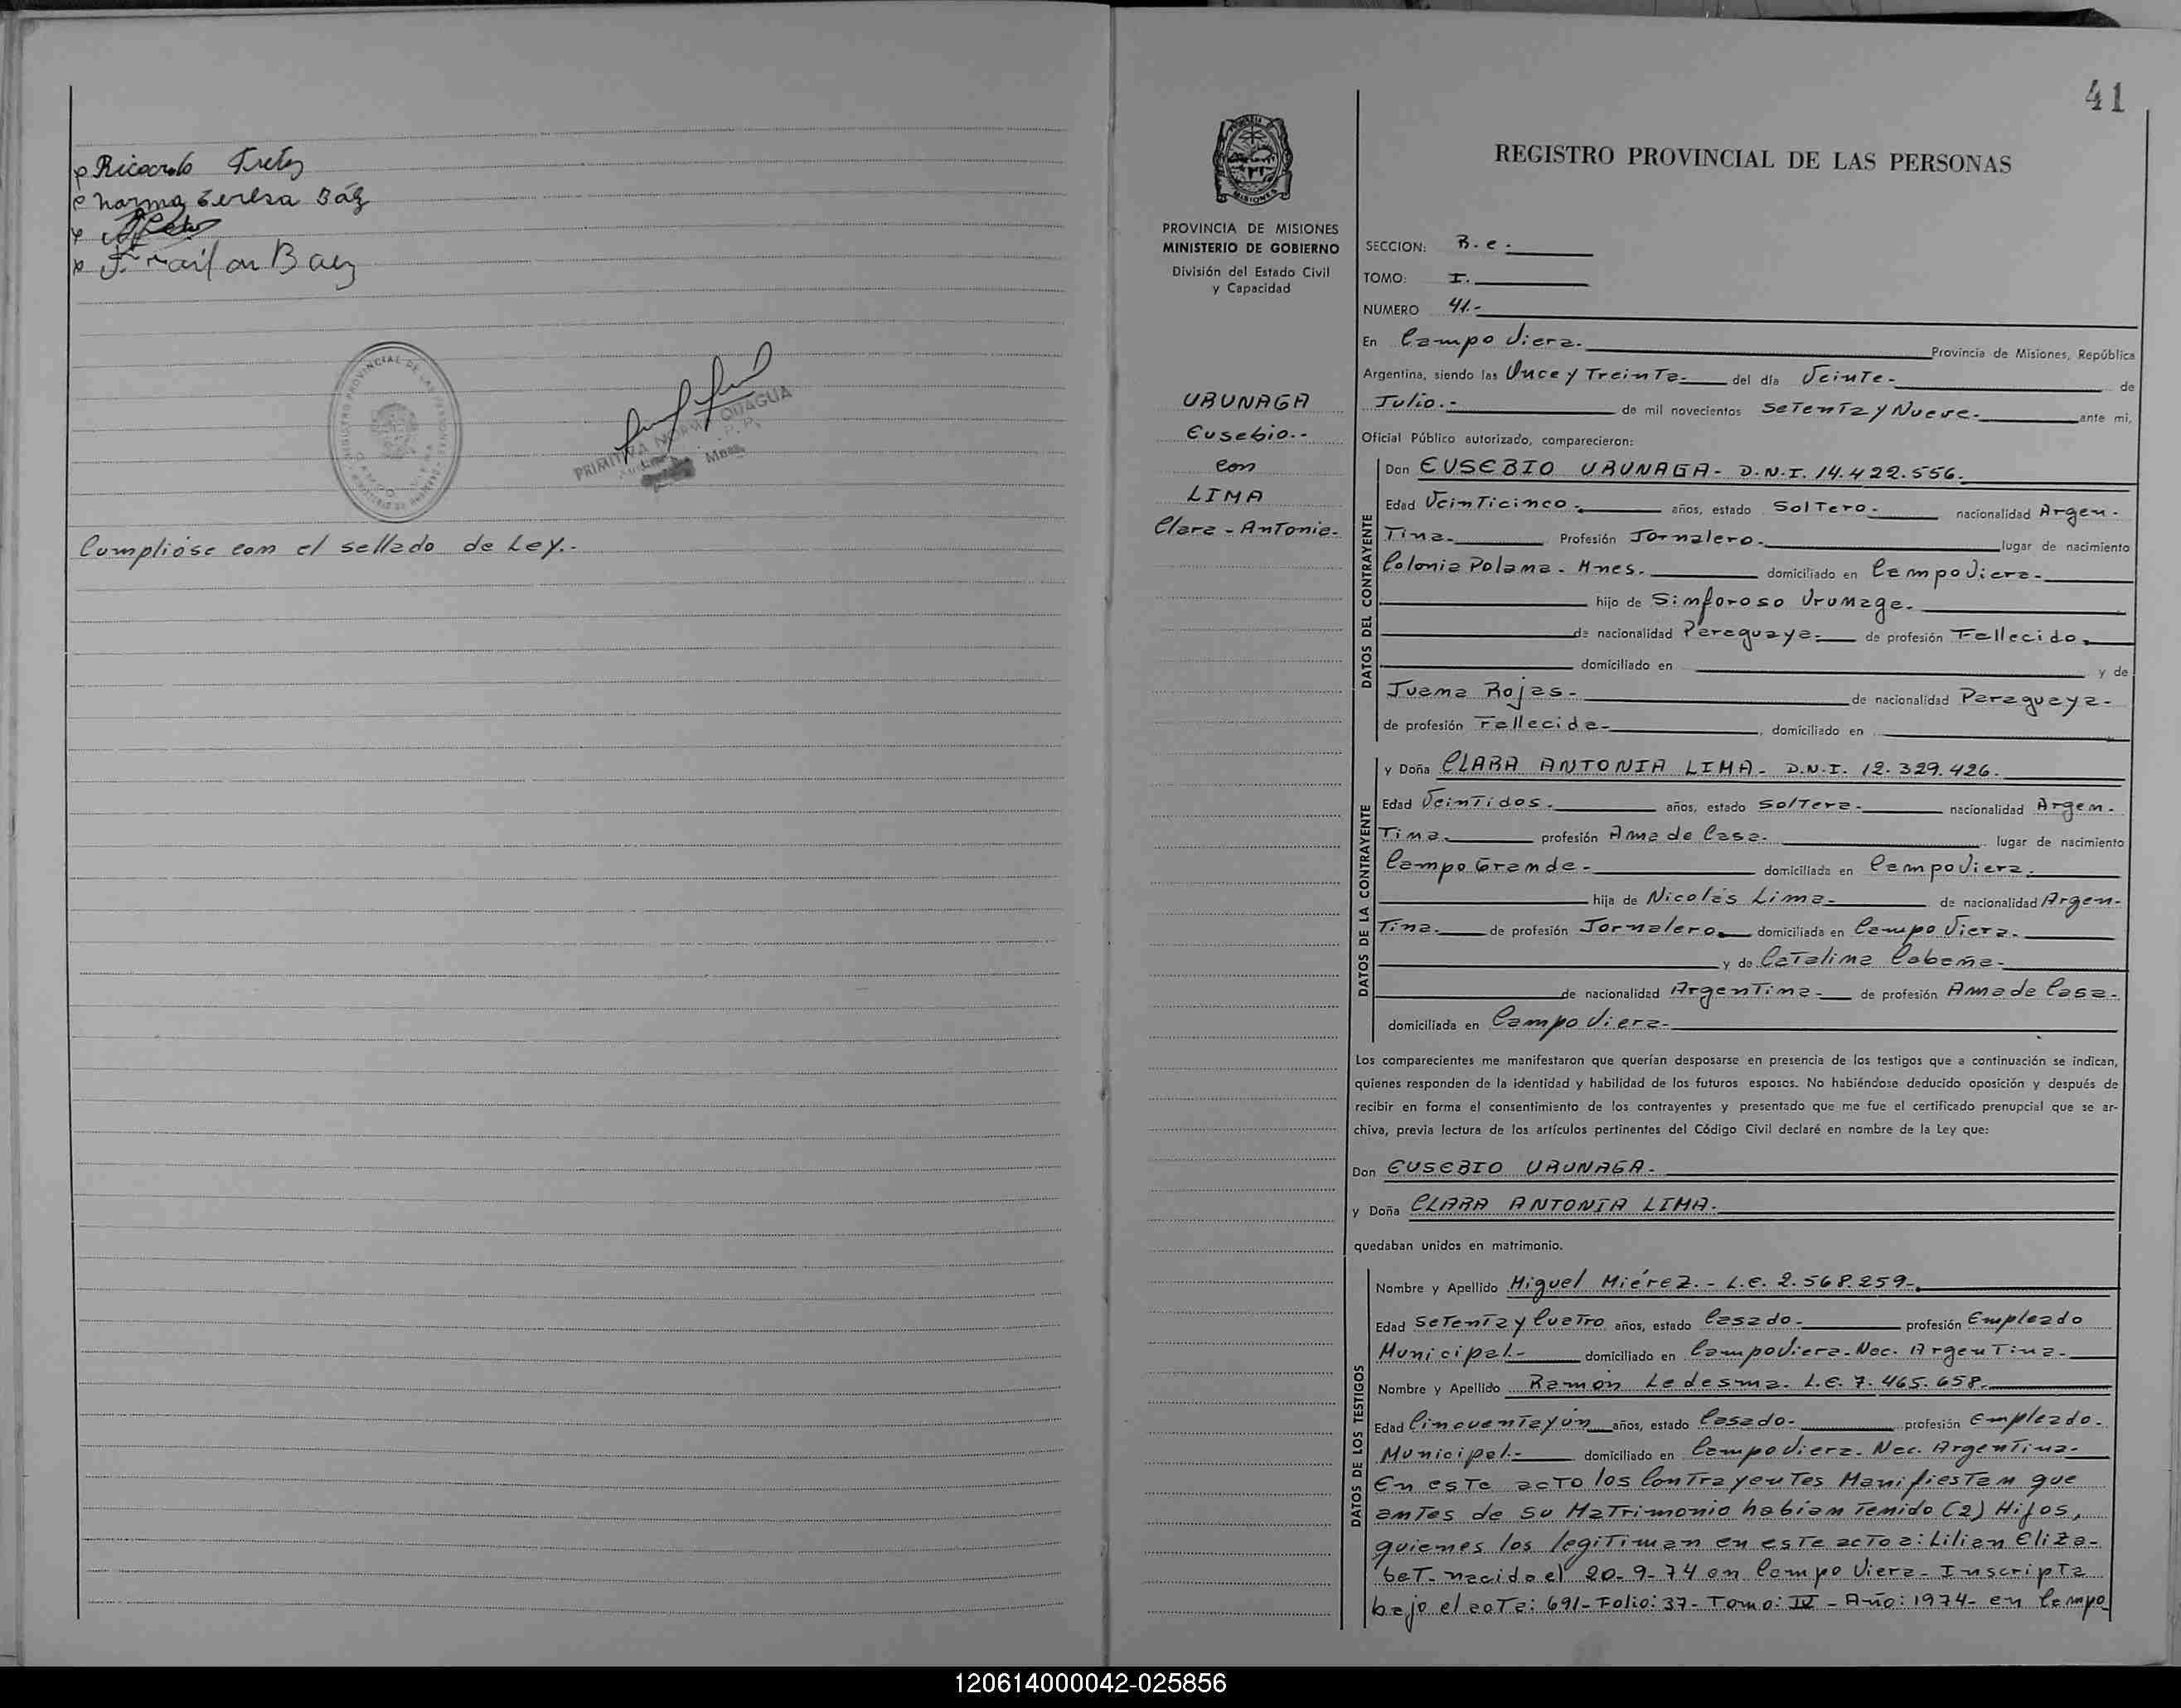 Ricardo
Norma Teresa Báez
Baez
REGISTRO PROVINCIAL DE LAS PERSONAS
PRIMITIVA NORMA QUAGLIA
Cumplióse con el sellado de Ley.-
41
MISIONES
PROVINCIA DE MISIONES
MINISTERIO DE GOBIERNO
División del Estado Civil
y Capacidad
URUNAGA
Eusebio.-
con
LIMA
Clara - Antonia-
REGISTRO PROVINCIAL DE LAS PERSONAS
SECCION: R.e.
TOMO: I.
NUMERO 41.-
En Campo Viera.- Provincia de Misiones, República
Argentina, siendo las Once y Treinta- del día Veinte- de
Julio.- de mil novecientos Setenta y Nueve.- ante mi,
Oficial Público autorizado, comparecieron:
DATOS DEL CONTRAYENTE
Don EUSEBIO URUNAGA- D.N.I. 14.422.556.
Edad Veinticinco- años, estado Soltero- nacionalidad Argen-
tina- Profesión Jornalero- lugar de nacimiento
Colonia Polana. Mnes. domiciliado en Campo Viera-
hijo de Simforoso Urunaga-
de nacionalidad Paraguaya- de profesión Fallecido.
domiciliado en y de
Juana Rojas- de nacionalidad Paraguaya-
de profesión Fallecida- domiciliado en
DATOS DE LA CONTRAYENTE
y Doña CLARA ANTONIA LIMA- D.N.I. 12.329.426.
Edad Veintidos- años, estado Soltera- nacionalidad Argen-
tina- profesión Ama de Casa- lugar de nacimiento
Campo Grande- domiciliada en Campo Viera.
hija de Nicolás Lima- de nacionalidad Argen-
tina- de profesión Jornalero- domiciliada en Campo Viera-
y de Catalina Cabaña-
de nacionalidad Argentina- de profesión Ama de Casa-
domiciliada en Campo Viera-
Los comparecientes me manifestaron que querían desposarse en presencia de los testigos que a continuación se indican,
quienes responden de la identidad y habilidad de los futuros esposos. No habiéndose deducido oposición y después de
recibir en forma el consentimiento de los contrayentes y presentado que me fue el certificado prenupcial que se ar-
chiva, previa lectura de los artículos pertinentes del Código Civil declaré en nombre de la Ley que:
Don EUSEBIO URUNAGA-
y Doña CLARA ANTONIA LIMA.
quedaban unidos en matrimonio.
DATOS DE LOS TESTIGOS
Nombre y Apellido Miguel Miérez.- L.E. 2.568.259-
Edad Setenta y Cuatro años, estado Casado- profesión Empleado
Municipal- domiciliado en Campo Viera- Nac. Argentina-
Nombre y Apellido Ramón Ledesma- L.E. 7.465.658.
Edad Cincuenta y ún años, estado Casado- profesión Empleado-
Municipal- domiciliado en Campo Viera- Nac. Argentina-
En este acto los Contrayentes Manifiestan que
antes de su Matrimonio habian tenido (2) Hijos,
quienes los legitiman en este acto a: Lilian Eliza-
bet- nacida el 20-9-74 en Campo Viera- Inscripta
bajo el acta: 691- Folio: 37- Tomo: IV - Año: 1974- en Campo
120614000042-025856